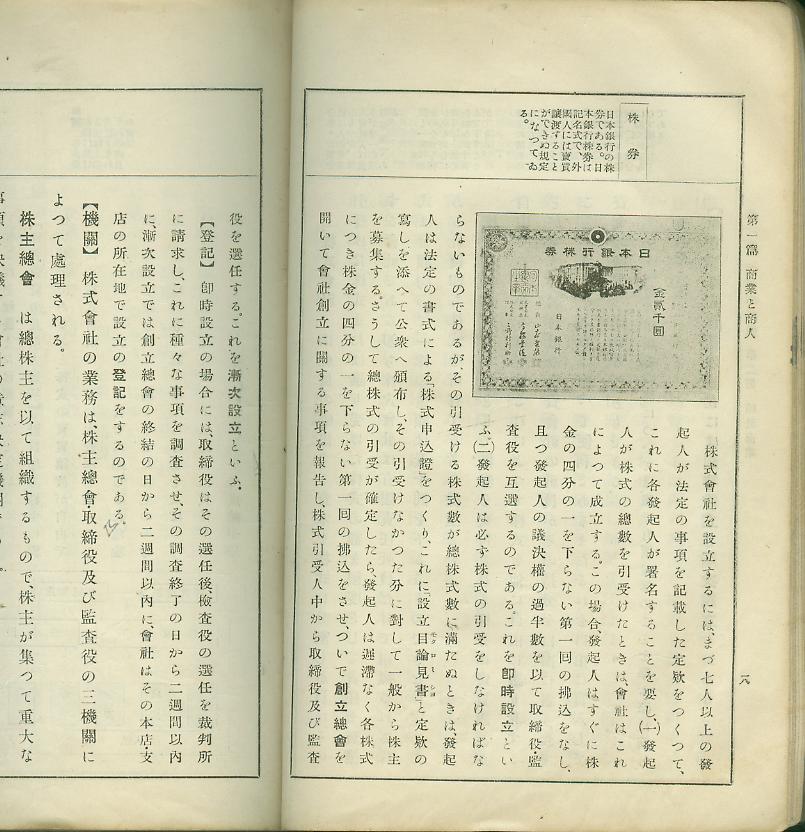 第一篇 商業と商人
一八
株券
日本銀行の株
券である。日
本銀行株券は
記名式で、外
國人には賣買
讓渡すること
ができぬ規定
になつてゐ
る。
日本銀行株券
金貳千圓
日本銀行
株式會社を設立するには、まづ七人以上の發
起人が法定の事項を記載した定款をつくつて、
これに各發起人が署名することを要し、(一)發起
人が株式の總數を引受けたときは、會社はこれ
によつて成立する。この場合發起人はすぐに株
金の四分の一を下らない第一回の拂込をなし、
且つ發起人の議決權の過半數を以て取締役・監
査役を互選するのである。これを卽時設立とい
ふ。(二)發起人は必ず株式の引受をしなければな
らないものであるがその引受ける株式數が總株式數に滿たぬときは、發起
人は法定の書式による「株式申込證」をつくり、これに「設立目論見書」と定款の
寫しを添へて公衆へ頒布し、その引受けなかつた分に對して一般から株主
を募集する。さうして總株式の引受が確定したら、發起人は遲滯なく各株式
につき株金の四分の一を下らない第一回の拂込をさせ、ついで創立總會を
開いて會社創立に關する事項を報告し、株式引受人中から取締役及び監査
役を選任する。これを漸次設立といふ。
【登記】 卽時設立の場合には、取締役はその選任後、檢査役の選任を裁判所
に請求し、これに種々な事項を調査させ、その調査終了の日から二週間以內
に、漸次設立では創立總會の終結の日から二週間以內に、會社はその本店支
店の所在地で設立の登記をするのである。
【機關】 株式會社の業務は、株主總會・取締役及び監査役の三機關に
よつて處理される。
株主總會 は總株主を以て組織するもので、株主が集つて重大な